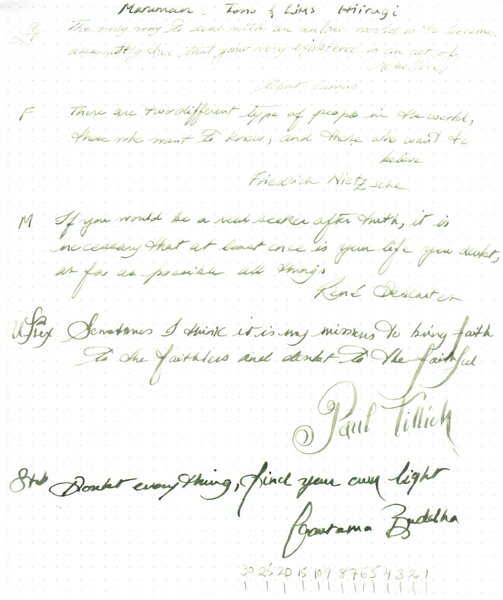 Maruman - Tono & Lims Hiiragi
EF The only way to deal with an unfree world is to become
absolutely free that your very existence is an act of
rebellion
Albert Camus
F There are two different type of people in the world,
those who want to know, and those who want to
believe
Friedrich Nietzsche
M If you would be a real seeker after truth, it is
necessary that at least once is your life you doubt,
as far as possible all things
René Descartes
Sometimes I think it is my mission to bring faith
to the faithless and doubt to the faithful
Paul Tillich
Stub Doubt everything, find your own light
Gautama Buddha
30 25 20 15 10 9 8 7 6 5 4 3 2 1